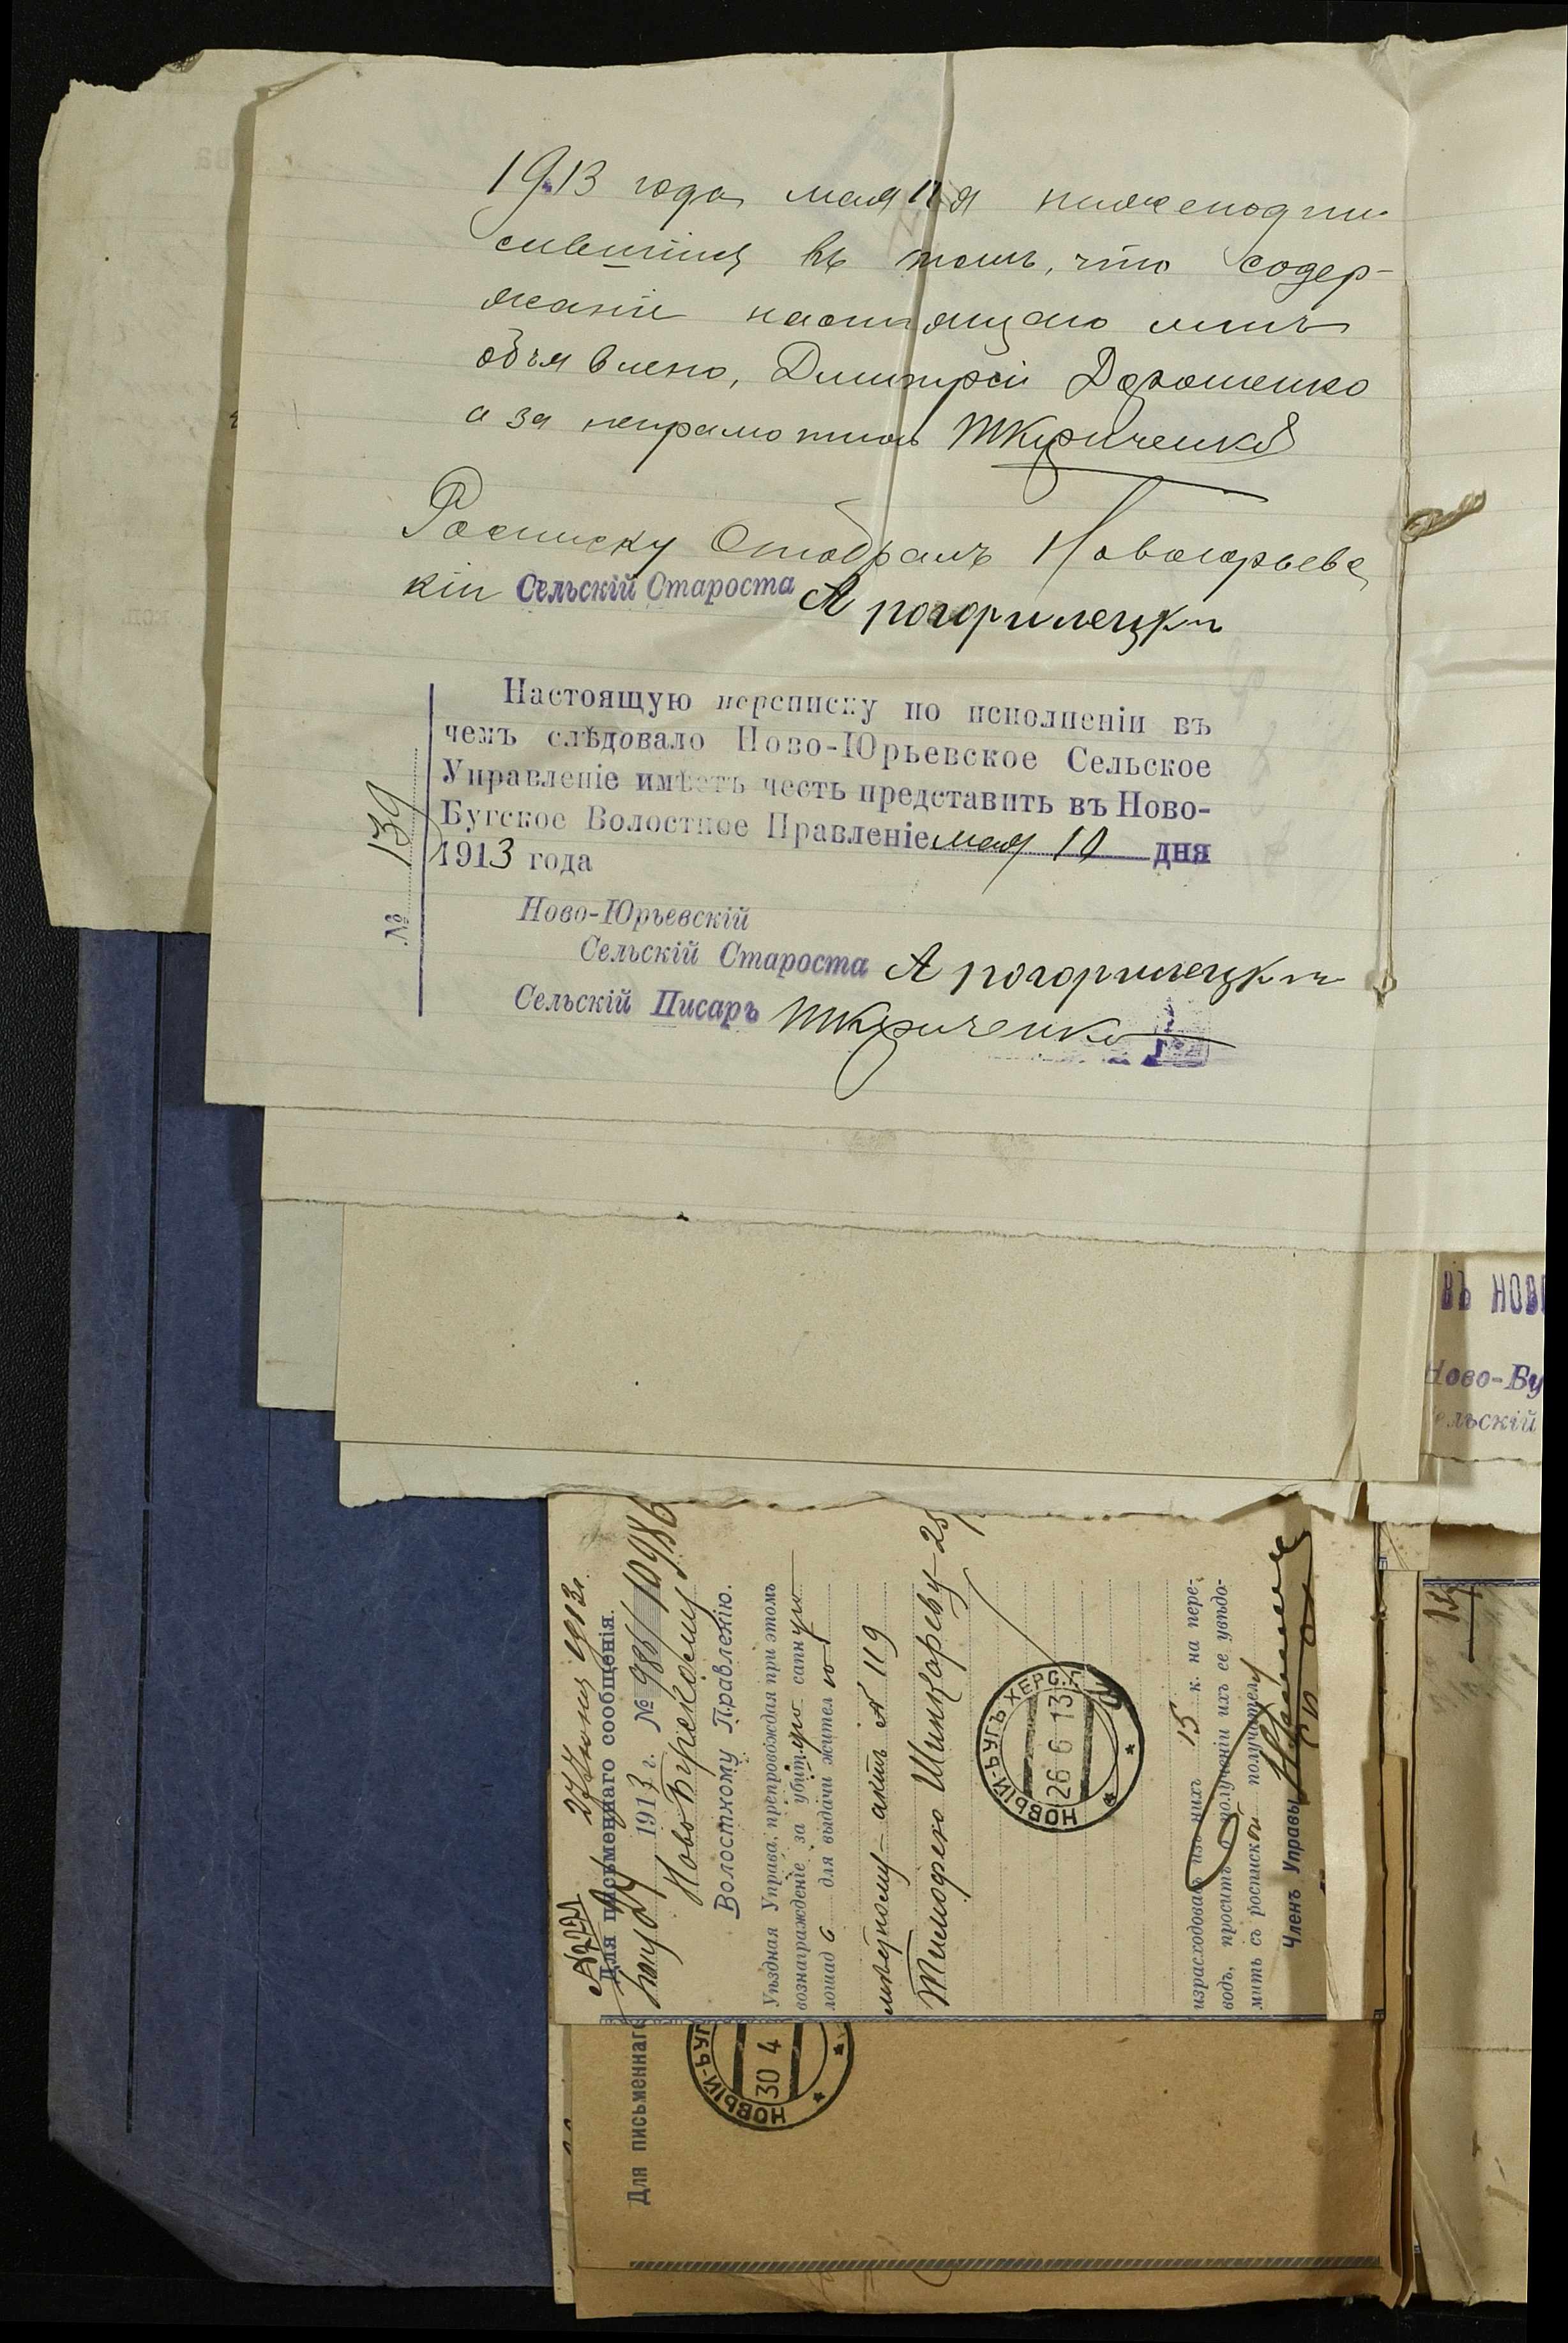 1913 года мая 11 я нижеподпи-
савшийся въ томъ, что содер-
жаніе настоящаго мнѣ
объявлено, Дмитрій Дорошенко
а за неграмотнаго ТКириченко
Росписку Отобралъ Новоюрьевс
кій Сельскій Староста А погорилецкій
Настоящую переписку по исполненіи въ
чемъ слѣдовало Ново-Юрьевское Сельское
Управленіе имѣетъ честь представить въ Ново-
Бугское Волостное Правленіе мая 10 дня
1913 года
№ 139
Ново-Юрьевскій
Сельскій Староста А погорилецкій
Сельскій Писарь ТКириченко
ВЪ НОВ
Ново-Бу
ельскій
27 Іюня 1913г.
Для письменнаго сообщенія.
1913 г. №
НовоБугскому
Волостному Правленію.
Уѣздная Управа, препровождая при этомъ
вознагражденіе за убитую сапную
лошад для выдачи жител ю
мѣстному - актъ № 119
Тимофею Шинкареву - 25
НОВЫЙ-БУГЪ ХЕРС.Г.
26 6 13
израсходовавъ изъ нихъ 15 к. на пере-
водъ, проситъ о полученіи ихъ ее увѣдо-
мить съ роспиской получателя
Членъ Управы
Для письменнаго
НОВЫЙ-БУГ
30 4